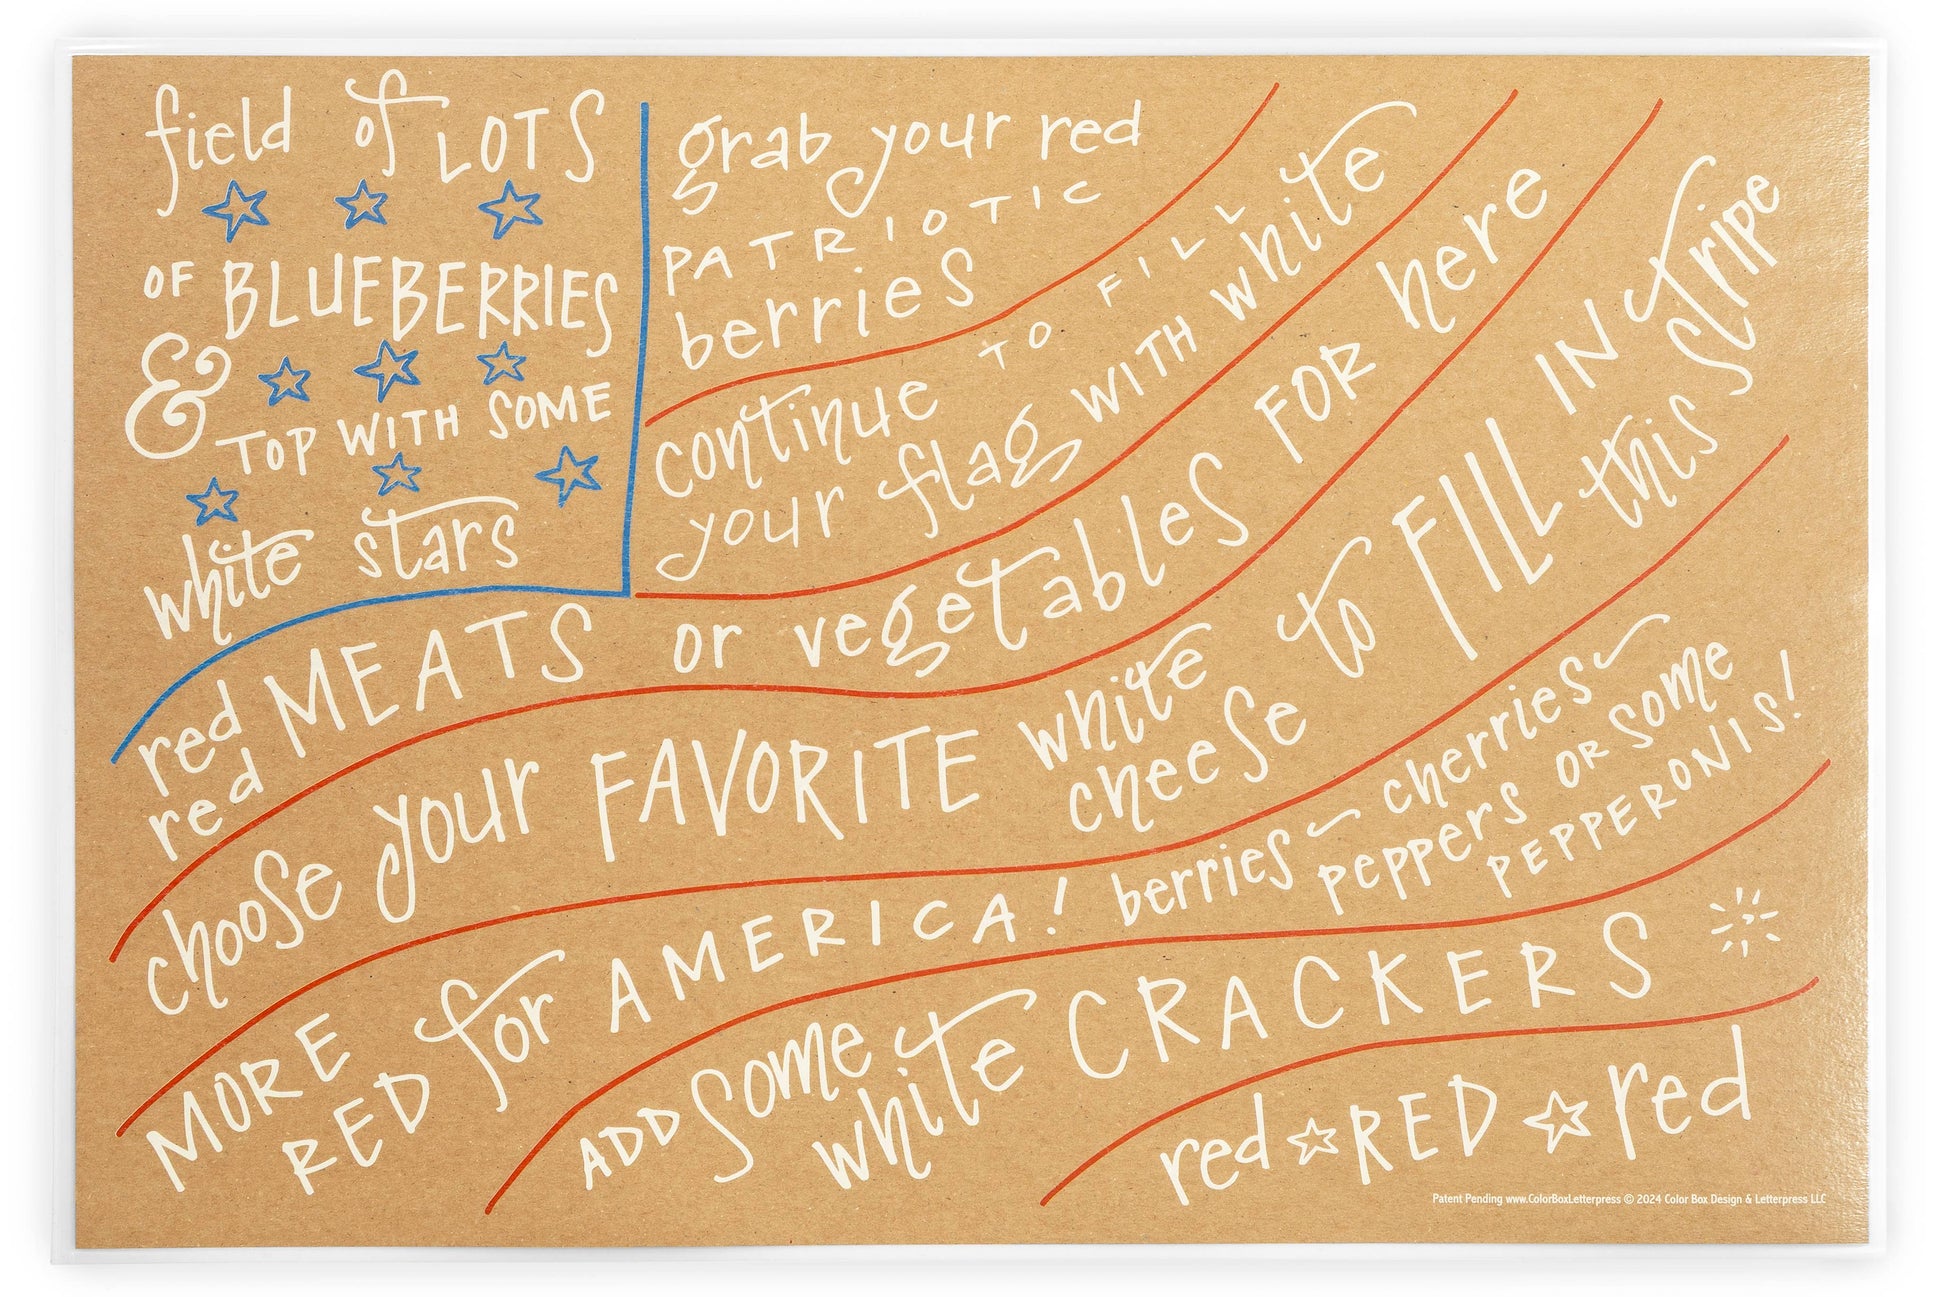 field of LOTS
OF BLUEBERRIES
& TOP WITH SOME
white stars
grab your red
PATRIOTIC
berries
continue TO FILL
your flag WITH white
red MEATS or vegetables FOR here
red
choose your FAVORITE white cheese to FILL IN this stripe
MORE
RED for AMERICA! berries ~ cherries ~
peppers OR some
PEPPERONIS!
ADD some white CRACKERS
red RED red
Patent Pending www.ColorBoxLetterpress © 2024 Color Box Design & Letterpress LLC